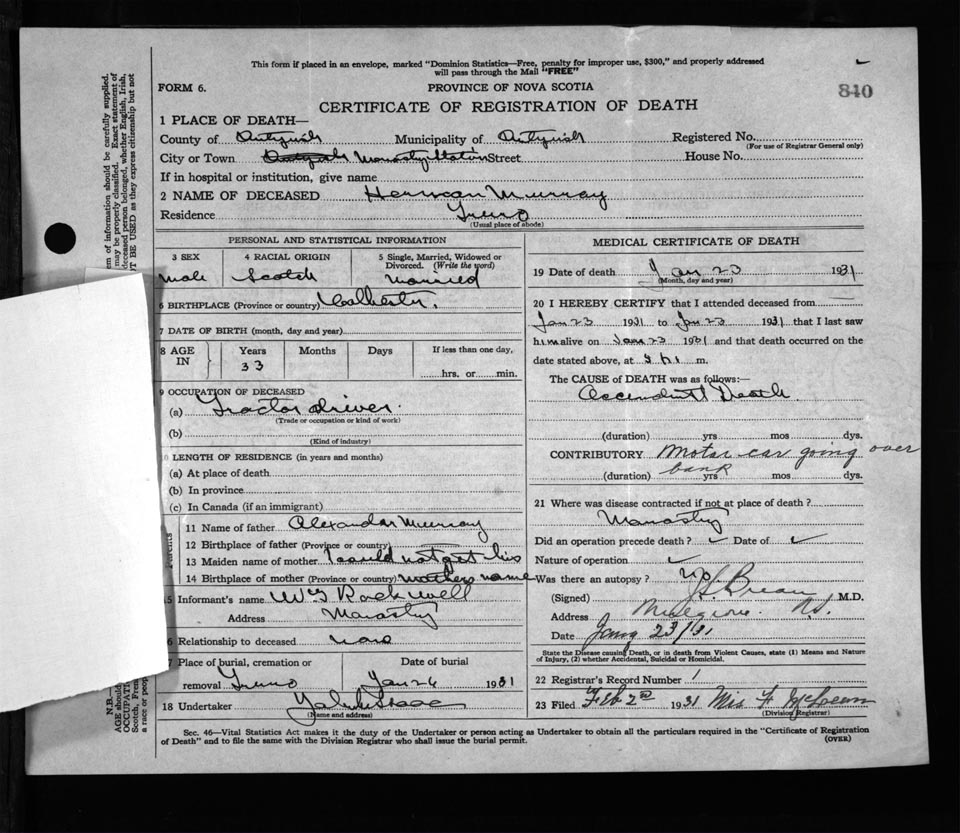 This form if placed in an envelope, marked "Dominion Statistics—Free, penalty for improper use, $300," and properly addressed
will pass through the Mail "FREE"
FORM 6.
PROVINCE OF NOVA SCOTIA
840
CERTIFICATE OF REGISTRATION OF DEATH
1 PLACE OF DEATH—
County of Antgnish Municipality of Antgnish Registered No.
(For use of Registrar General only)
City or Town Street House No.
If in hospital or institution, give name
2 NAME OF DECEASED Herman Murray
Residence Truro
(Usual place of abode)
PERSONAL AND STATISTICAL INFORMATION
3 SEX 4 RACIAL ORIGIN 5 Single, Married, Widowed or
Divorced. (Write the word)
male Scotch married
6 BIRTHPLACE (Province or country)
7 DATE OF BIRTH (month, day and year)
8 AGE IN Years Months Days If less than one day,
33 hrs. or min.
9 OCCUPATION OF DECEASED
(a) Tractor driver.
(Trade or occupation or kind of work)
(b)
(Kind of industry)
LENGTH OF RESIDENCE (in years and months)
(a) At place of death
(b) In province
(c) In Canada (if an immigrant)
Parents
11 Name of father Alexander Murray
12 Birthplace of father (Province or country)
13 Maiden name of mother I could not get his
14 Birthplace of mother (Province or country) mothers name
15 Informant's name Rockwell
Address Monasty
6 Relationship to deceased none
7 Place of burial, cremation or Date of burial
removal Truro Jan 26 1931
18 Undertaker
(Name and address)
MEDICAL CERTIFICATE OF DEATH
19 Date of death Jan 23 1931
(Month, day and year)
20 I HEREBY CERTIFY that I attended deceased from
Jan 23 1931 to Jan 23 1931 that I last saw
him alive on Jan 23 1931 and that death occurred on the
date stated above, at m.
The CAUSE of DEATH was as follows:—
Death
(duration) yrs mos dys.
CONTRIBUTORY Motor car going over
bank
(duration) yrs mos dys.
21 Where was disease contracted if not at place of death?
Monasty
Did an operation precede death? ✓ Date of ✓
Nature of operation ✓
Was there an autopsy? no
(Signed) M.D.
Address N.S.
Date 23/31
State the Disease causing Death, or in death from Violent Causes, state (1) Means and Nature
of Injury, (2) whether Accidental, Suicidal or Homicidal.
22 Registrar's Record Number 1
23 Filed Feb 2nd 1931 Miss F
(Division Registrar)
Sec. 46—Vital Statistics Act makes it the duty of the Undertaker or person acting as Undertaker to obtain all the particulars required in the "Certificate of Registration
of Death" and to file the same with the Division Registrar who shall issue the burial permit.
(OVER)
em of information should be carefully supplied.
may be properly classified. Exact statement of
deceased person belonged, whether English, Irish,
OT BE USED as they express citizenship but not
N.B.—
AGE should
OCCUPATI
Scotch, Fren
a race or peop